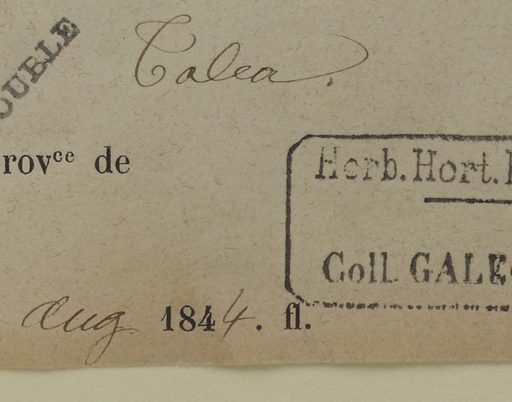 OUBLE
Talea.
rovce de
Herb. Hort.
Coll. GALE
Aug. 1844. fl.